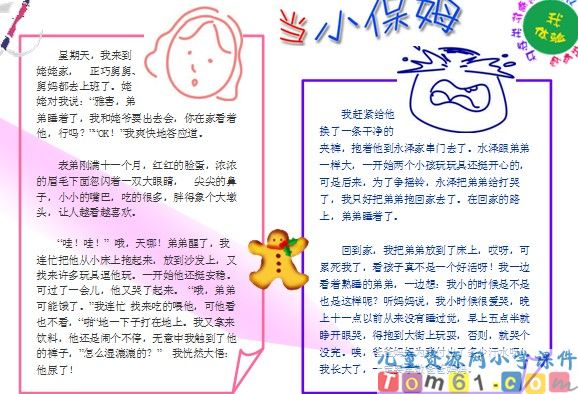 当小保姆
我
体验
星期天，我来到
姥姥家，　正巧舅舅、
舅妈都去上班了。姥
姥对我说：“雅害，弟
弟睡着了，我和姥爷要出去会，你在家看着
他，行吗？”“OK！”我爽快地答应道。
表弟刚满十一个月，红红的脸蛋，浓浓
的眉毛下面忽闪着一双大眼睛，　尖尖的鼻
子，小小的嘴巴，吃的很多，胖得象个大墩
头，让人越看越喜欢。
“哇！哇！”哦，天哪！弟弟醒了，我
连忙把他从小床上抱起来，放到沙发上，又
找来许多玩具逗他玩。一开始他还挺安稳。
可过了一会儿，他又哭了起来。“哦，弟弟
可能饿了。”我连忙 找来吃的喂他，可他看
也不看，“啪”地一下子打在地上。我又拿来
饮料，他还是闹个不停，无意中我触到了他
的裤子，“怎么湿漉漉的？”　我恍然大悟：
他尿了！
我赶紧给他
换了一条干净的
夹裤，抱着他到永泽家串门去了。水泽跟弟弟
一样大，一开始两个小孩玩玩具还挺开心的，
可是后来，为了争摇铃，永泽把弟弟给打哭
了，我只好把弟弟抱回家去了。在回家的路
上，弟弟睡着了。
回到家，我把弟弟放到了床上，哎呀，可
累死我了，看孩子真不是一个好活呀！我一边
看着熟睡的弟弟，一边想：我小的时候是不是
也是这样呢？听妈妈说，我小时候很爱哭，晚
上十一点以前从来没有睡过觉，早上五点半就
睁开眼哭，得抱到大街上玩耍，否则，就哭个
没完。唉，爸爸妈妈
我长大了，一
儿童资源网小学课件
Tom61.com